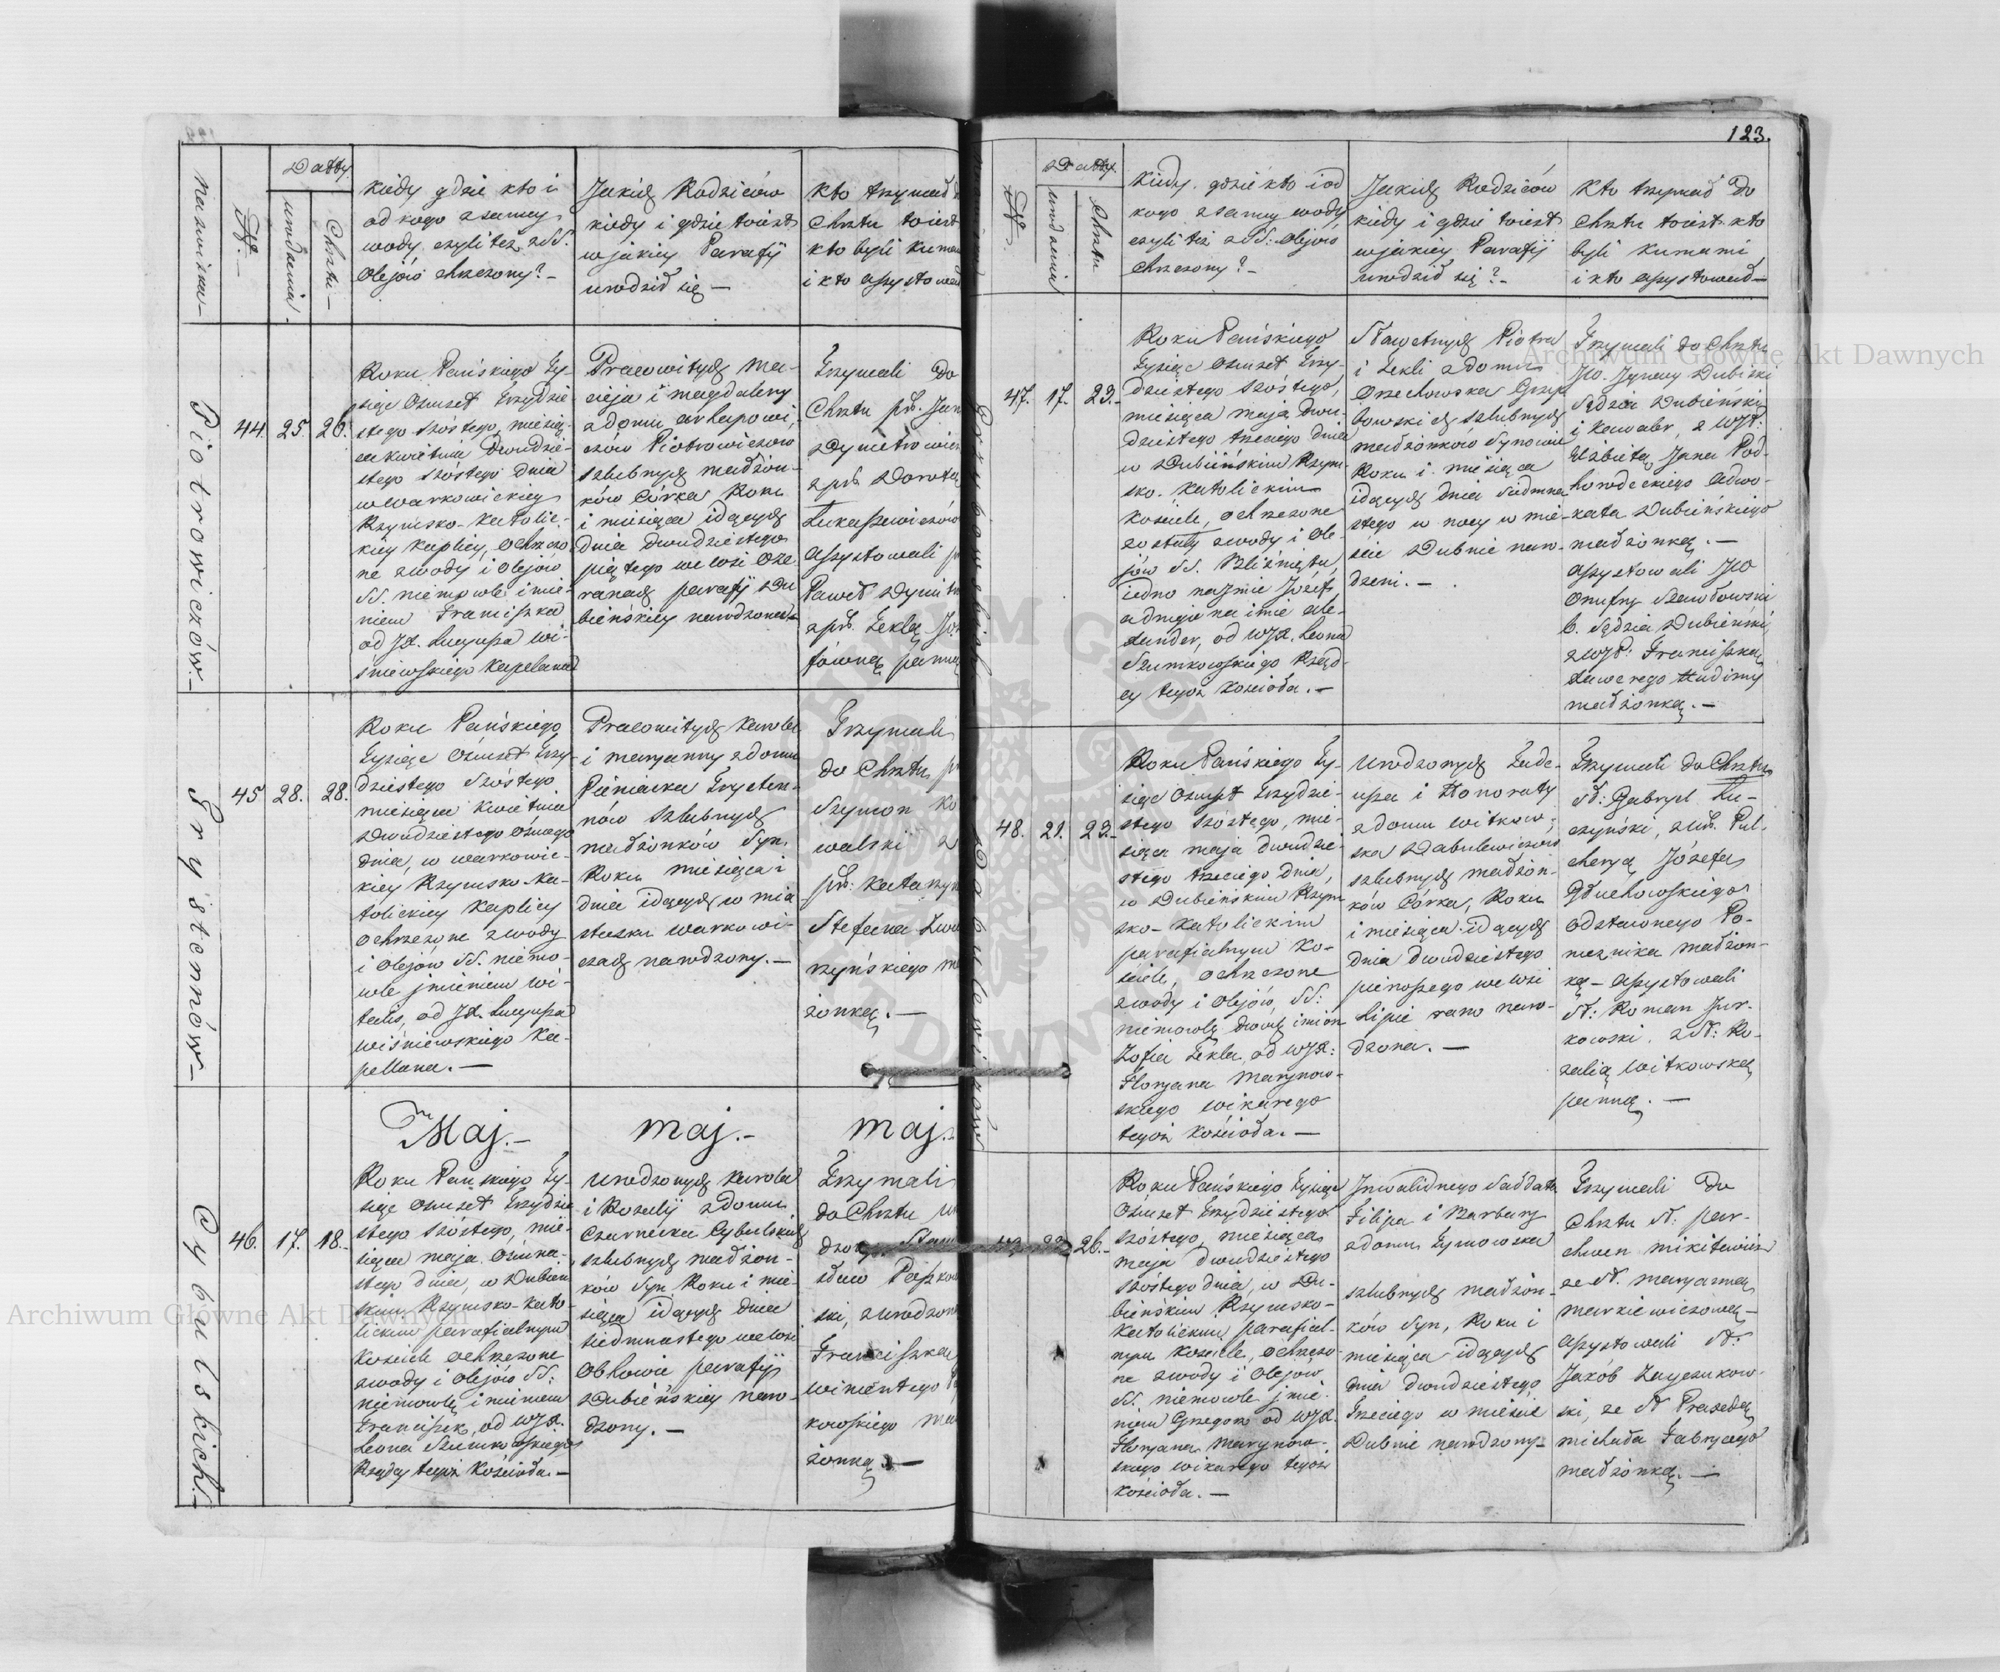 Nazwiska
№
Datty
urodzenia
Chrztu
Kiedy gdzie kto i
od kogo z samey
wody czyli też z SS.
Olejów chrzczony? —
Jakich Rodziców
kiedy i gdzie toiest
w jakiey Parafij
urodził się —
Kto trzymał
Chrztu toiest
kto byli Kuma
i kto assystował
Piotrowiczów. —
44. 25. 26.
Roku Pańskiego Ty-
siąc Osmset trzydzie-
stego szóstego, miesią-
ca kwietnia Dwudzie-
stego szóstego dnia
w Warkowickiey
Rzymsko-katolic-
kiey Kaplicy, Ochrzczo-
ne z wody i Olejów
SS. niemowle imie-
niem Franciszka
od JX. Lucyusza Wi-
śniewskiego Kapelana
Pracowitych Ma-
cieja i Magdaleny
z domu
czów Piotrowiczów
szlubnych małżon-
ków Córka Roku
i miesiąca idących
dnia Dwudziestego
piątego we wsi Oze-
ranach parafij Du-
bieńskiey narodzona —
Trzymali Do
Chrztu pr. Jan
Dymitrowicz
z pr. Dorotą
Łukaszewiczów
assystowali
Paweł Dymitr
z pr. Teklą Józ
fówną panną
Trystennów —
45. 28. 28.
Roku Pańskiego
Tysiąc Osmset trzy-
dziestego Szóstego
miesiąca kwietnia
Dwudziestego Osmego
dnia, w Warkowic-
kiey Rzymsko-Ka-
tolickiey Kaplicy
ochrzczone z wody
i Olejów SS. niemo-
wle jmieniem Wi-
talis, od JX. Lucyusza
Wiśniewskiego Ka-
pellana. —
Pracowitych Karola
i Maryanny z domu
Pieniacka Trysten-
nów szlubnych
małżonków Syn,
Roku miesiąca i
dnia idących w mia-
steczku Warkowi-
czach narodzony. —
Trzymali
do Chrztu
Szymon Ko
walski z
pr. Katarzyn
Stefana
rzyńskiego
żonką. —
Maj. —
Maj. —
Maj.
Cybulskich. —
46. 17. 18.
Roku Pańskiego Ty-
siąc Osmset Trzydzie-
stego szóstego, mie-
siąca maja Osmna-
stego dnia, w Dubień-
skim Rzymsko-kato-
lickim parafialnym
Kościele ochrzczone
z wody i Olejów SS:
niemowlę imieniem
Franciszek, od WJX.
Leona Szumkowskiego
Rządcy tegoż Kościoła. —
Urodzonych Karola
i Rozalij z domu
Czarnecka Cybulskich
szlubnych małżon-
ków Syn, Roku i mie-
siąca idących dnia
siedmnastego we wsi
Obhowie parafij
Dubieńskiey naro-
dzony. —
Trzymali
do Chrztu
Stani
sław Paszkow
ski, z urodzon
Franciszką
Wincentego
kowskiego
żonką. —
123.
№
Datty
urodzenia
Chrztu
Kiedy, gdzie kto i od
kogo z samey wody
czyli też z SS: Olejów
chrzczony? —
Jakich Rodziców
kiedy i gdzie toiest
w jakiey Parafij
urodził się? —
Kto trzymał Do
Chrztu toiest kto
byli Kumami
i kto assystował —
Grzybowskich
47. 17. 23.
Roku Pańskiego
Tysiąc Osmset trzy-
dziestego szóstego,
miesiąca maja Dwu-
dziestego trzeciego dnia
w Dubieńskim Rzym-
sko. Katolickim
Kościele, ochrzczone
zostały z wody i Ole-
jów SS. Bliźnięta,
jedno na jmie Józef
a drugie na imie Ale-
xander, od WJX. Leona
Szumkowskiego Rząd-
cy tegoż Kościoła. —
Sławetnych Piotra
i Tekli z domu
Orzechowska Grzy-
bowskich szlubnych
małżonków Synowie
Roku i miesiąca
idących dnia Siedmna-
stego w nocy w mie-
ście Dubnie naro-
dzeni. —
Trzymali do Chrztu
JW. Jgnacy Dubiski
Sędzia Dubieński
i kawaler, z WJP:
Elżbietą Jana Pod-
horodeckiego Adwo-
kata Dubieńskiego
małżonką. —
Assystowali JW
Onufry
b. Sędzia Dubieński,
z WJP: Franciszką
małżonką. —
Dabulewiczów
48. 21. 23.
Roku Pańskiego Ty-
siąc Osmset trzydzie-
stego szóstego, mie-
siąca maja dwudzie-
stego trzeciego dnia,
w Dubieńskim Rzym-
sko-katolickim
parafialnym Ko-
ściele, ochrzczone
z wody i Olejów, SS:
niemowlę dwuch imion
Zofia Tekla od WJX:
Floryana Marynow-
skiego Wikarego
tegoż Kościoła. —
Urodzonych Tade-
usza i Honoraty
z domu Witkow-
ska Dabulewiczów
szlubnych małżon-
ków Córka, Roku
i miesiąca idących
dnia dwudziestego
pierwszego we wsi
Lipie rano naro-
dzona. —
Trzymali do Chrztu
Gabryel Łu-
czyński, z Pul-
cheryą Józefa
Głuchowskiego
odstawnego Po-
rucznika małżon-
ką — Assystowali
Roman Jur-
kowski, z Ro-
zalią Witkowską
panną. —
26.
Roku Pańskiego Tysiąc
Osmset Trzydziestego
szóstego, miesiąca
maja dwudziestego
szóstego dnia, w Du-
bieńskim Rzymsko-
Katolickim parafial-
nym Kościele, ochrzczo-
ne z wody i Olejów
SS. niemowle jmie-
niem Grzegorz od WJX.
Floryana Marynow-
skiego Wikarego tegoż
Kościoła. —
Jnwalidnego Sałdata
Filipa i Barbary
z domu Tymowska
szlubnych małżon-
ków Syn, Roku i
miesiąca idących
dnia dwudziestego
Trzeciego w mieście
Dubnie narodzony. —
Trzymali Do
Chrztu Par-
chwen Mikitowicz
ze Maryanną
Markiewiczówną —
Assystowali
Jakób Zayczukow-
ski, ze Praxedą
Michała Fabrycego
małżonką. —
Archiwum Główne Akt Dawnych
Archiwum Główne Akt Dawnych